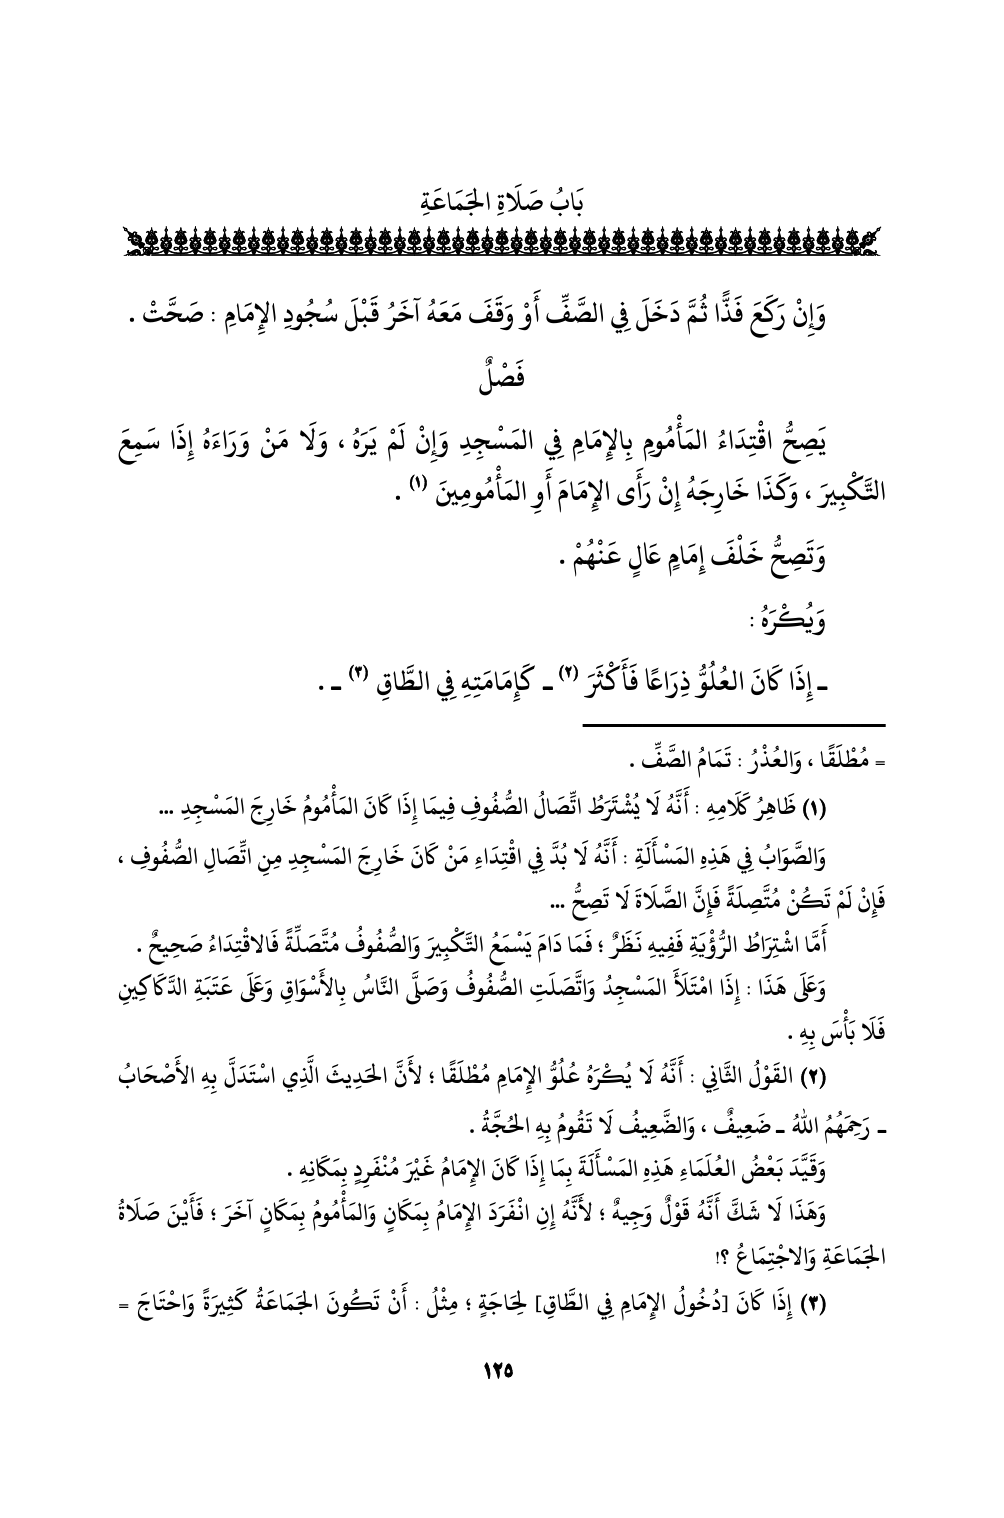 بَابُ صَلَاةِ الجَمَاعَةِ
وَإِنْ رَكَعَ فَذًّا ثُمَّ دَخَلَ فِي الصَّفِّ أَوْ وَقَفَ مَعَهُ آخَرُ قَبْلَ سُجُودِ الإِمَامِ : صَحَّتْ .
فَصْلٌ
يَصِحُّ اقْتِدَاءُ المَأْمُومِ بِالإِمَامِ فِي المَسْجِدِ وَإِنْ لَمْ يَرَهُ ، وَلَا مَنْ وَرَاءَهُ إِذَا سَمِعَ
التَّكْبِيرَ ، وَكَذَا خَارِجَهُ إِنْ رَأَى الإِمَامَ أَوِ المَأْمُومِينَ (١) .
وَتَصِحُّ خَلْفَ إِمَامٍ عَالٍ عَنْهُمْ .
وَيُكْرَهُ :
ـ إِذَا كَانَ العُلُوُّ ذِرَاعًا فَأَكْثَرَ (٢) ـ كَإِمَامَتِهِ فِي الطَّاقِ (٣) ـ .
= مُطْلَقًا ، وَالعُذْرُ : تَمَامُ الصَّفِّ .
(١) ظَاهِرُ كَلَامِهِ : أَنَّهُ لَا يُشْتَرَطُ اتِّصَالُ الصُّفُوفِ فِيمَا إِذَا كَانَ المَأْمُومُ خَارِجَ المَسْجِدِ ...
وَالصَّوَابُ فِي هَذِهِ المَسْأَلَةِ : أَنَّهُ لَا بُدَّ فِي اقْتِدَاءِ مَنْ كَانَ خَارِجَ المَسْجِدِ مِنِ اتِّصَالِ الصُّفُوفِ ،
فَإِنْ لَمْ تَكُنْ مُتَّصِلَةً فَإِنَّ الصَّلَاةَ لَا تَصِحُّ ...
أَمَّا اشْتِرَاطُ الرُّؤْيَةِ فَفِيهِ نَظَرٌ ؛ فَمَا دَامَ يَسْمَعُ التَّكْبِيرَ وَالصُّفُوفُ مُتَّصَلِّةً فَالاقْتِدَاءُ صَحِيحٌ .
وَعَلَى هَذَا : إِذَا امْتَلَأَ المَسْجِدُ وَاتَّصَلَتِ الصُّفُوفُ وَصَلَّى النَّاسُ بِالأَسْوَاقِ وَعَلَى عَتَبَةِ الدَّكَاكِينِ
فَلَا بَأْسَ بِهِ .
(٢) القَوْلُ الثَّانِي : أَنَّهُ لَا يُكْرَهُ عُلُوُّ الإِمَامِ مُطْلَقًا ؛ لأَنَّ الحَدِيثَ الَّذِي اسْتَدَلَّ بِهِ الأَصْحَابُ
ـ رَحِمَهُمُ اللهُ ـ ضَعِيفٌ ، وَالضَّعِيفُ لَا تَقُومُ بِهِ الحُجَّةُ .
وَقَيَّدَ بَعْضُ العُلَمَاءِ هَذِهِ المَسْأَلَةَ بِمَا إِذَا كَانَ الإِمَامُ غَيْرَ مُنْفَرِدٍ بِمَكَانِهِ .
وَهَذَا لَا شَكَّ أَنَّهُ قَوْلٌ وَجِيهٌ ؛ لأَنَّهُ إِنِ انْفَرَدَ الإِمَامُ بِمَكَانٍ وَالمَأْمُومُ بِمَكَانٍ آخَرَ ؛ فَأَيْنَ صَلَاةُ
الجَمَاعَةِ وَالاجْتِمَاعُ ؟!
(٣) إِذَا كَانَ [دُخُولُ الإِمَامِ فِي الطَّاقِ] لِحَاجَةٍ ؛ مِثْلُ : أَنْ تَكُونَ الجَمَاعَةُ كَثِيرَةً وَاحْتَاجَ =
١٢٥